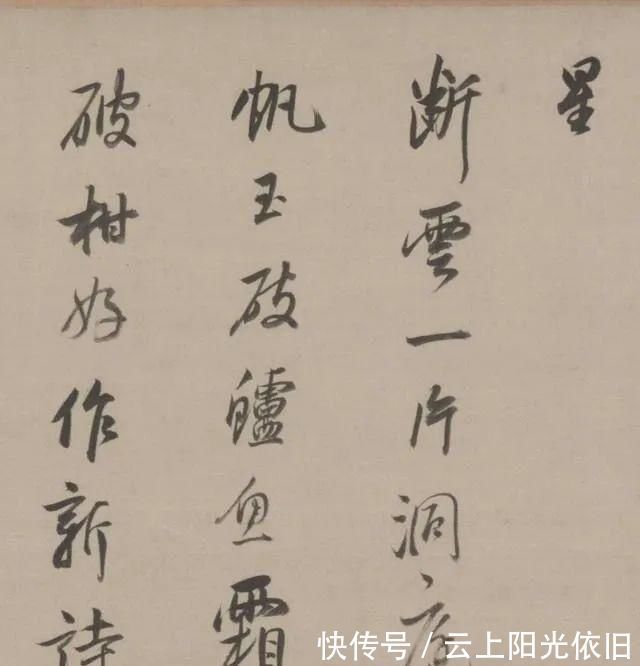 星
断雲一片洞庭
帆玉破鱸魚霜
破柑好作新詩
快传号/云上阳光依旧